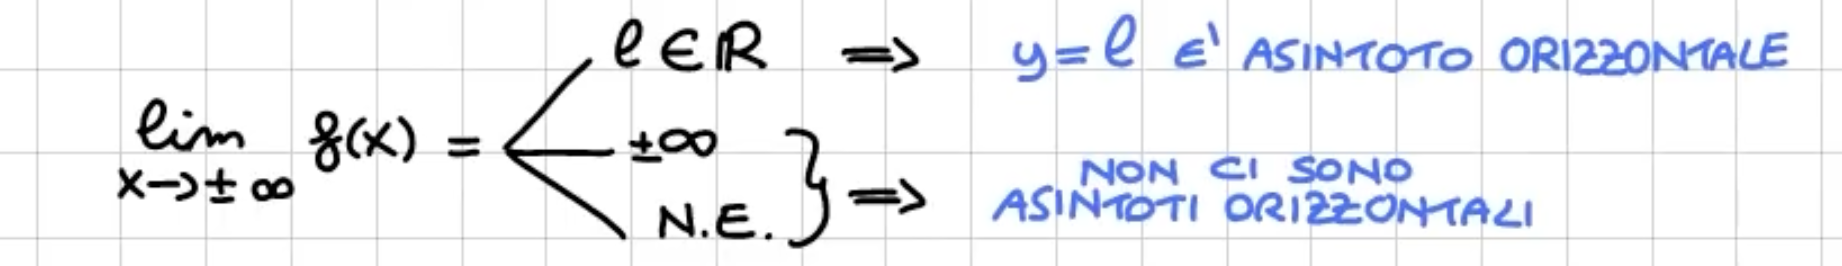 lim x→±∞ f(x) =
ℓ ∈ ℝ ⇒ y = ℓ E' ASINTOTO ORIZZONTALE
±∞
N.E. } ⇒ NON CI SONO
ASINTOTI ORIZZONTALI